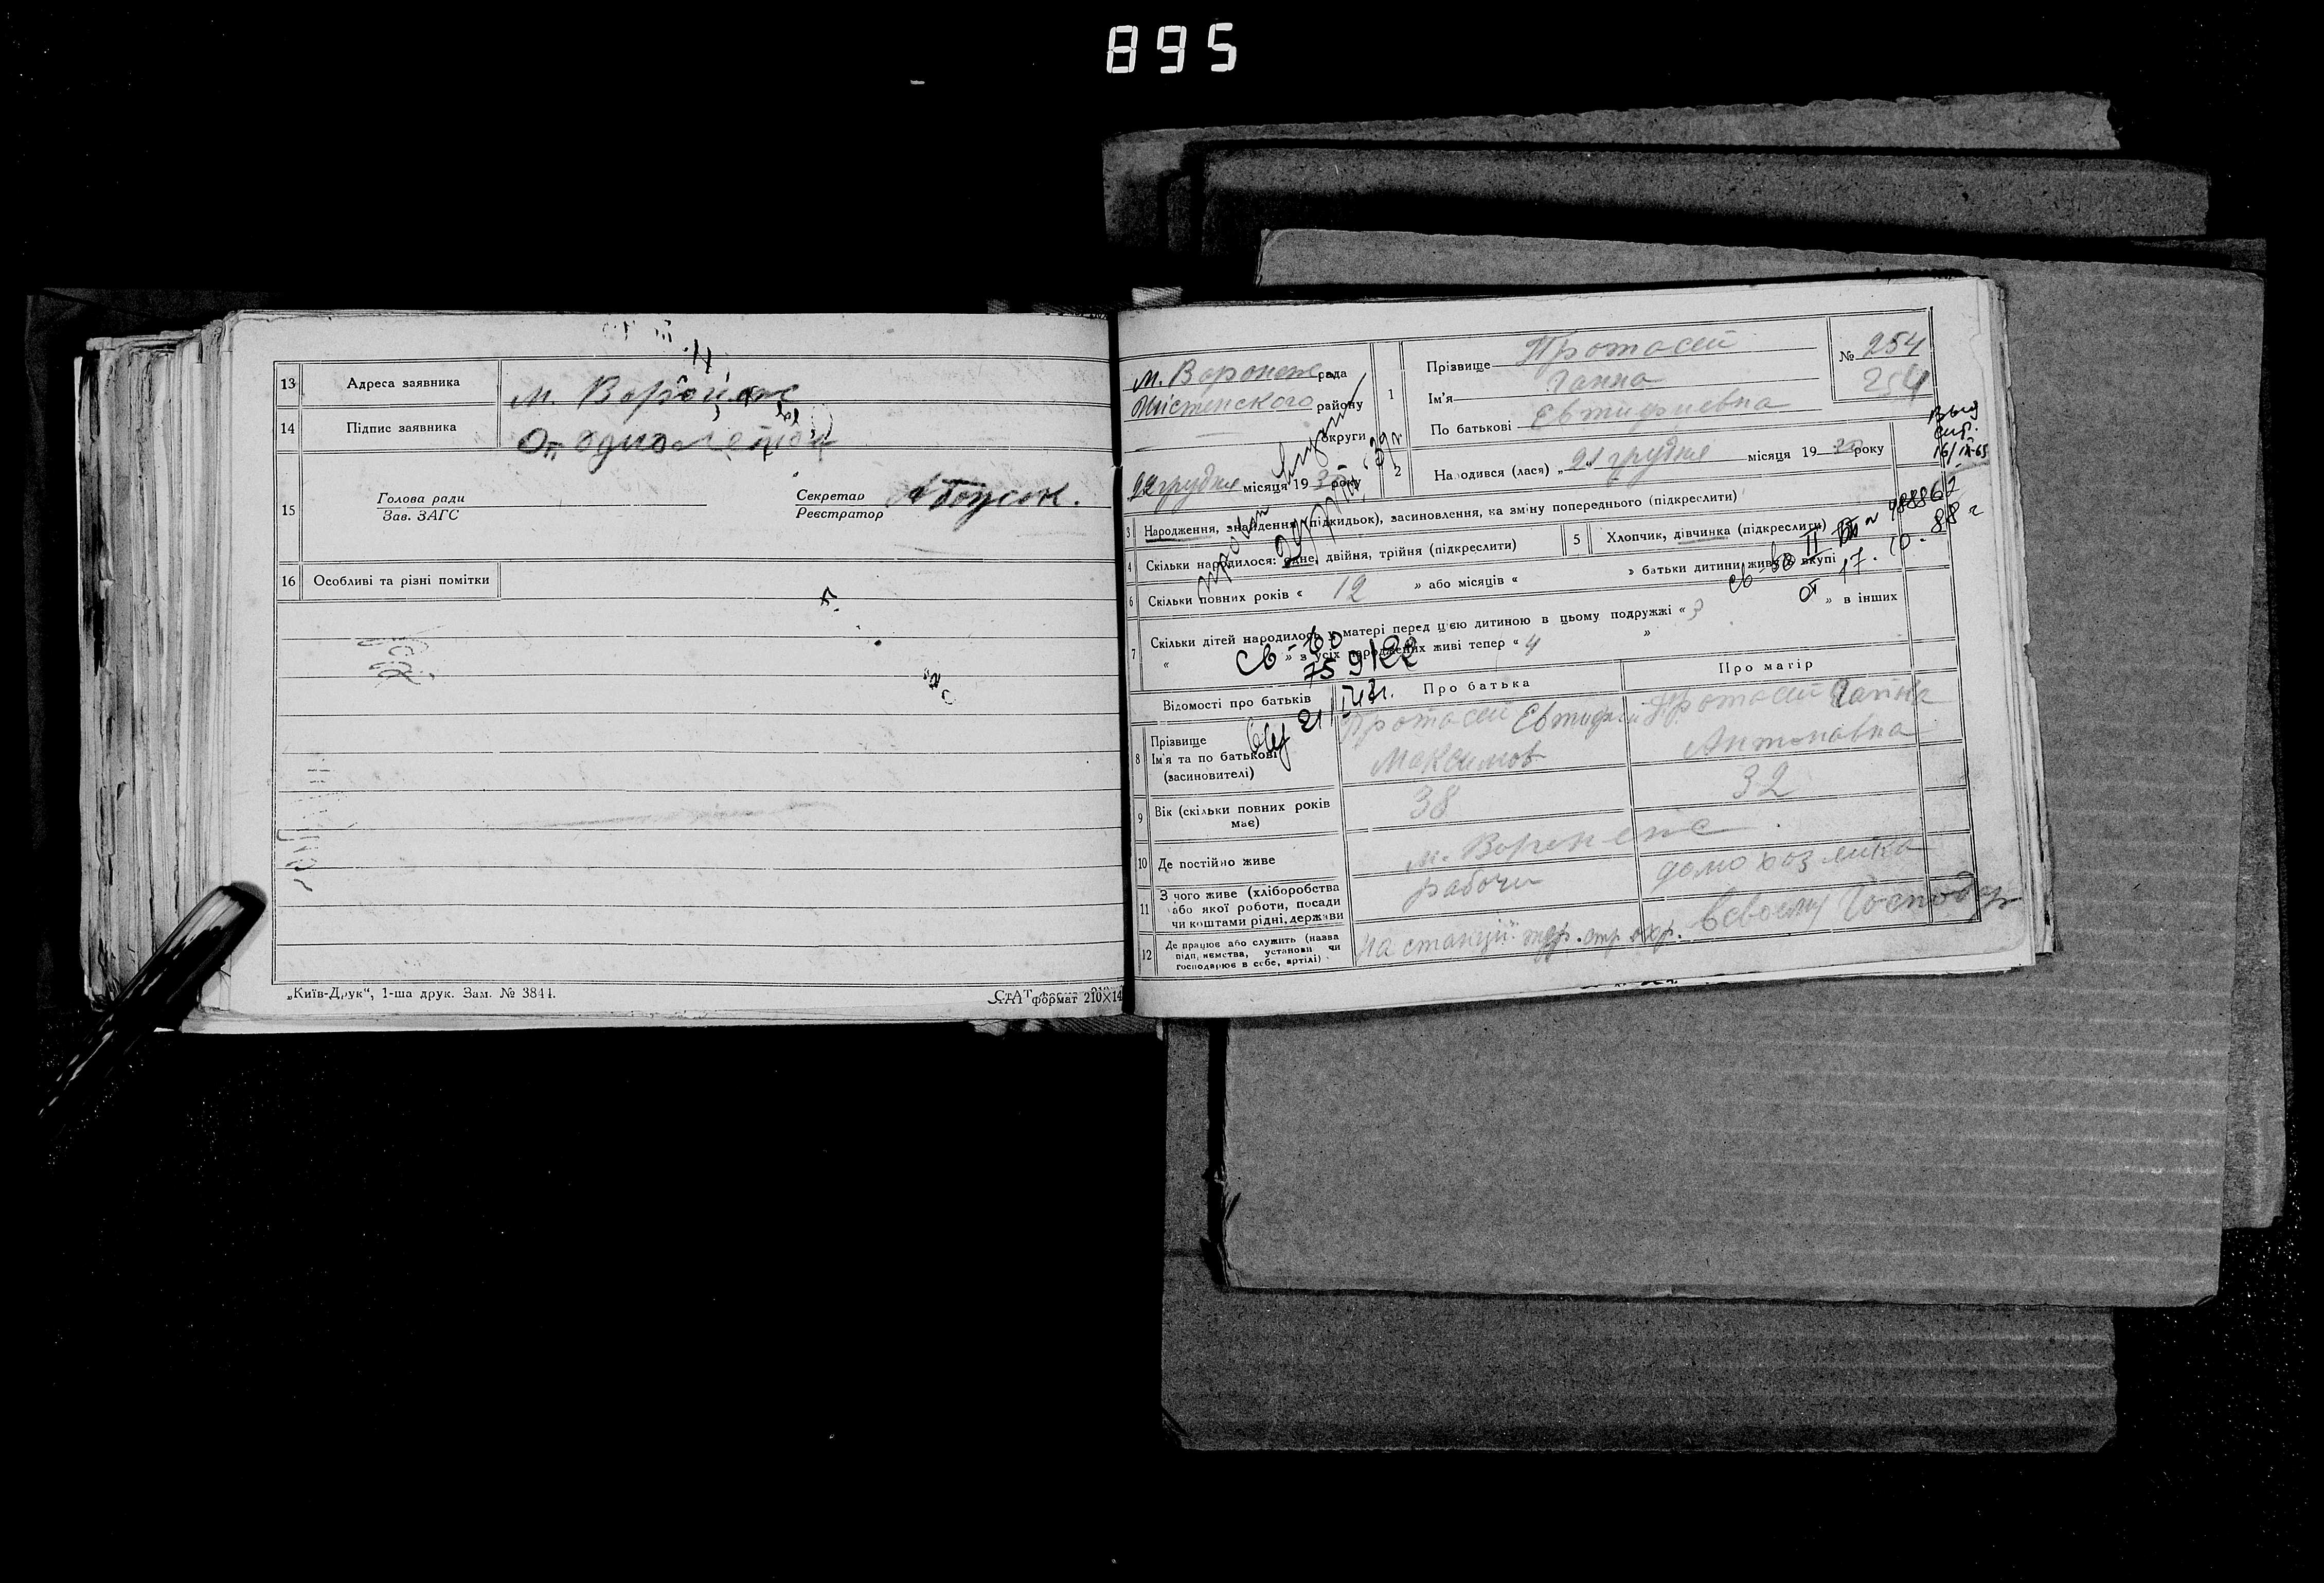 895
13 Адреса заявника м. Вороніж
14 Підпис заявника
15 Голова ради
Зав. ЗАГС
Секретар
Реєстратор
16 Особливі та різні помітки
„Київ-Друк“, 1-ша друк. Зам. № 3844.
СтАТ формат 210×14
м. Вороніж рада
району
округи
22 грудня місяця 193 року
1 Прізвище Протасей
Ім'я Ганна
По батькові Евтифиевна
№ 254
254
2 Народився (лася) „21 грудня місяця 19 року
Выд
16/IX-65
3 Народження, знайдення (підкидьок), засиновлення, на зміну попереднього (підкреслити)
4 Скільки народилося: одне, двійня, трійня (підкреслити)
5 Хлопчик, дівчинка (підкреслити)
498862
от 17. 10. 88 г
6 Скільки повних років « 12 » або місяців « » батьки дитини живуть вкупі
7 Скільки дітей народилось у матері перед цією дитиною в цьому подружжі « 3 » в інших
« » з усіх народжених живі тепер « 4 »
Св-во
Відомості про батьків
Про батька
Про матір
8 Прізвище
Ім'я та по батькові
(засиновителі)
Протасей Евтифий
Максимов
Протасей Ганна
Антоновна
9 Вік (скільки повних років
має)
38
32
10 Де постійно живе
м. Воронеж
11 З чого живе (хліборобства
або якої роботи, посади
чи коштами рідні, держави
рабочи
домохозяика
12 Де працює або служить (назва
підприємства, установи чи
господарює в себе, артілі)
На станції стр. охр.
в своему Господар